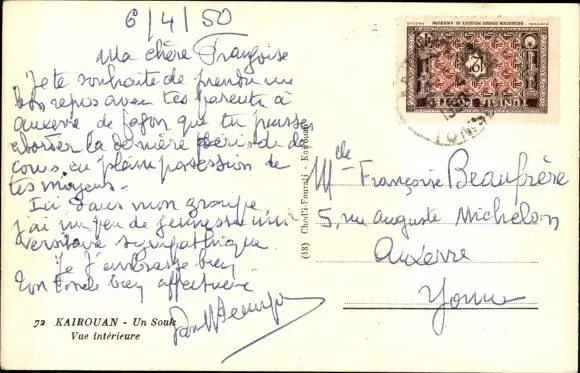 6/4/50
Ma chère Françoise
Je te souhaite de prendre un
bon repos avec tes parents à
Auxerre de façon que tu puisses
aborder la dernière période de
cours en pleine possession de
tes moyens.
Ici dans mon groupe
j'ai un peu de jeunesse uni
versitaire sympathique.
Je t'embrasse bien
Ton oncle bien affectueux
72 KAIROUAN - Un Souk
Vue intérieure
(48) Chedli-Fourati - Kairouan
POSTES
TUNISIE
Mlle Françoise Beaufrère
5, rue Auguste Michelon
Auxerre
Yonne